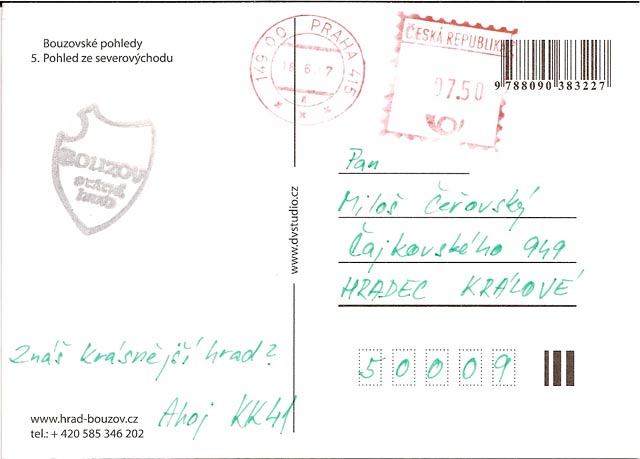 Bouzovské pohledy
5. Pohled ze severovýchodu
149 00 PRAHA 415
ČESKÁ REPUBLIKA
07.50
9 788090 383227
BOUZOV
státní
hrad
www.dvstudio.cz
Pan
Miloš Čeřovský
Čajkovského 949
HRADEC KRÁLOVÉ
50009
Znáš krásnější hrad?
Ahoj KK41
www.hrad-bouzov.cz
tel.: + 420 585 346 202